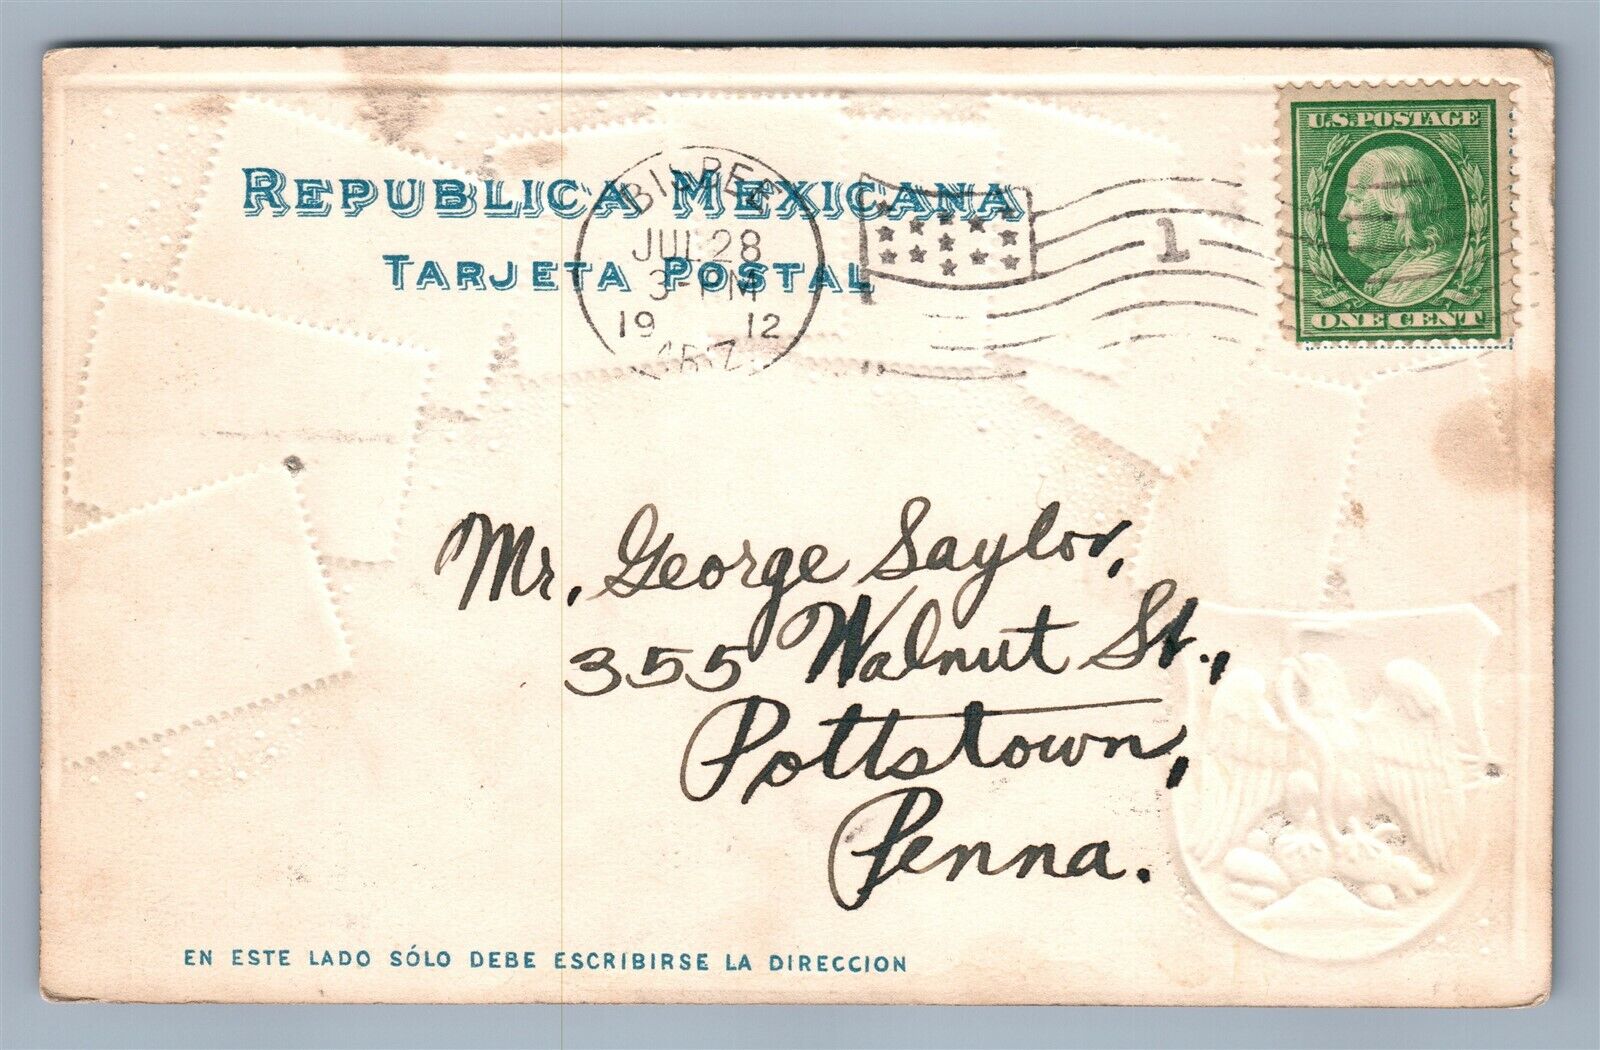 REPUBLICA MEXICANA
TARJETA POSTAL
BISBEE
JUL 28
3-PM
19 12
ARIZ
1
U.S. POSTAGE
ONE CENT
Mr. George Saylor,
355 Walnut St.,
Pottstown,
Penna.
EN ESTE LADO SÓLO DEBE ESCRIBIRSE LA DIRECCION